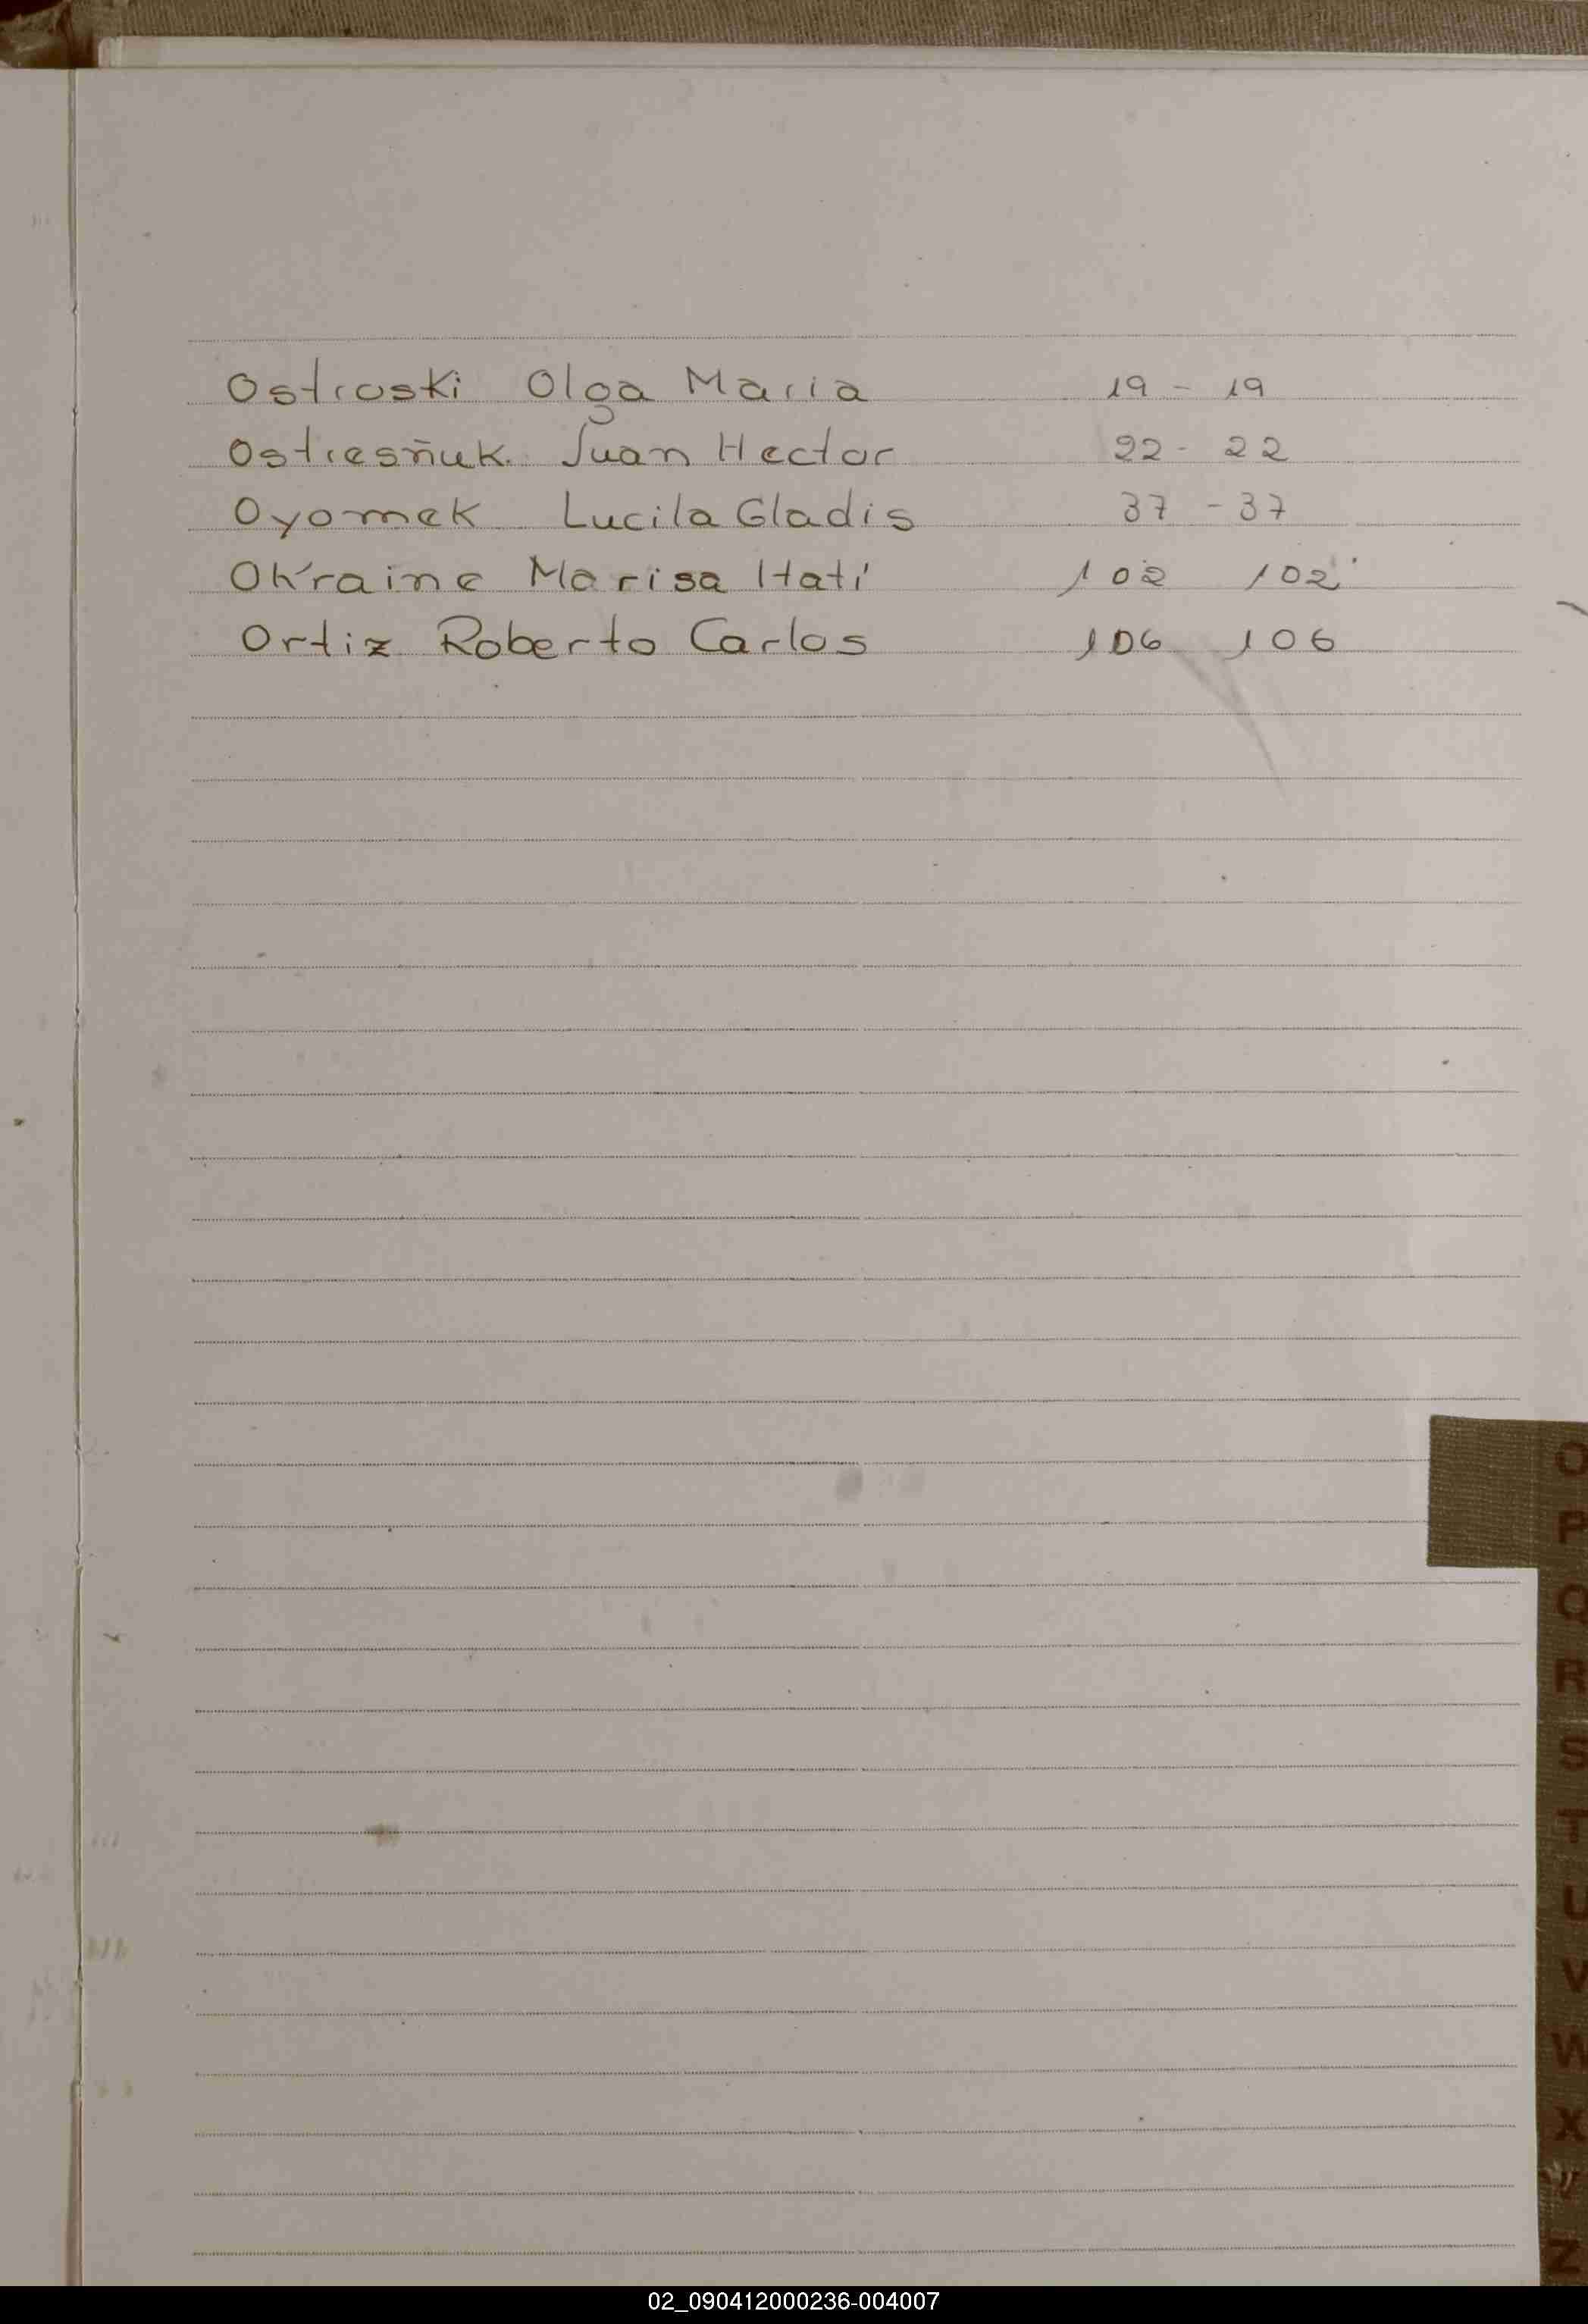 Ostroski Olga Maria 19 - 19
Ostresñuk. Juan Hector 22 - 22
Oyomek Lucila Gladis 37 - 37
Marisa Itatí 102 102
Ortiz Roberto Carlos 106 106
O
P
Q
R
S
T
U
V
W
X
Y
Z
02_090412000236-004007